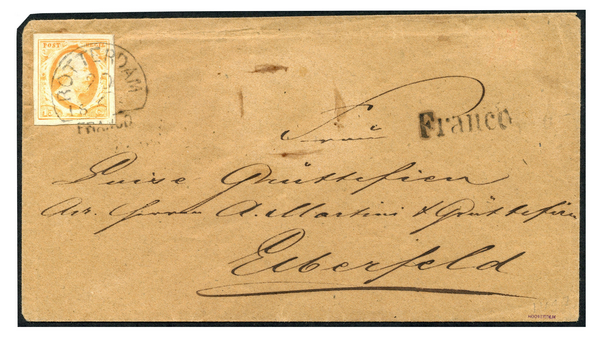 POST
ROTTERDAM
FRANCO
Franco
Frau
Luise Grüttefien
Adr. Herren A. Martini & Grüttefien
Elberfeld